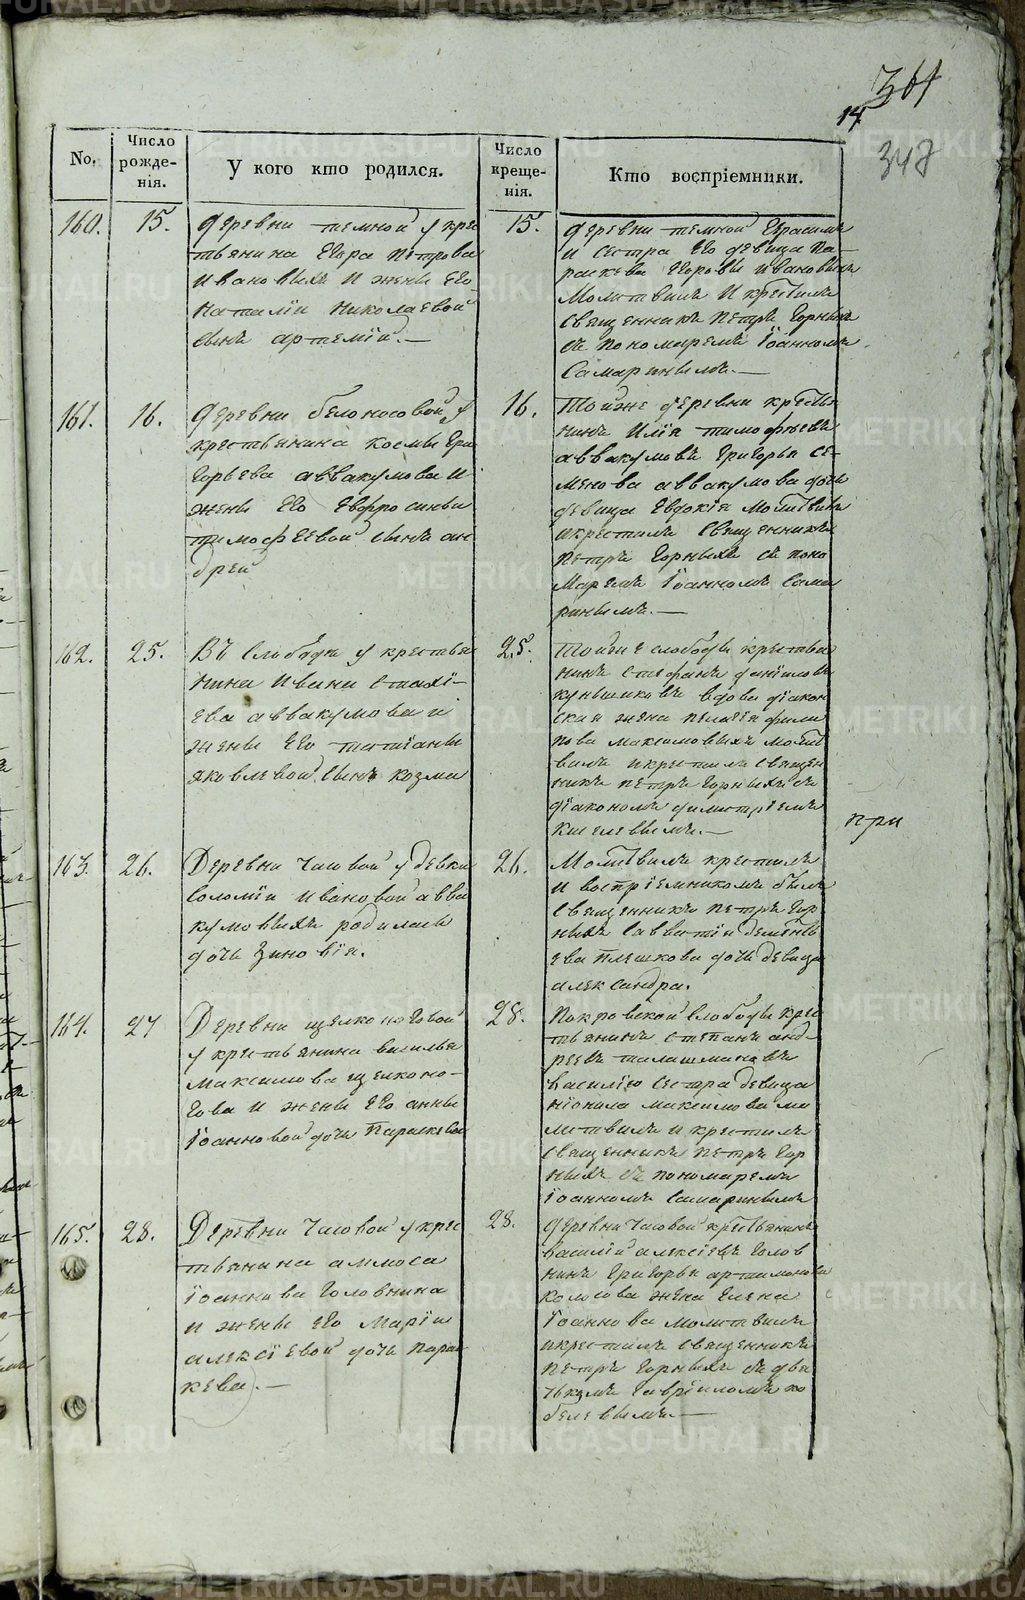 361
14
348
No.
Число рожденія.
У кого кто родился.
Число крещенія.
Кто воспріемники.
160.
15.
Деревни темной у крес
тьянина Егора Петрова
Ивановыхъ и жены его
Наталіи Николаевой
сынъ артемій. —
15.
Деревни темной Герасимъ
и сестра его девица Па-
раскева Егоровы Ивановыхъ
Молитвилъ и крестилъ
Священникъ Петръ Горныхъ
съ пономаремъ Іоанномъ
Самаринымъ. —
161.
16.
Деревни белоносовой у
крестьянина Космы Гри
горьева аввакумова и
жены его Евфросиньи
тимофеевой сынъ ан
дрей
16.
Тойже деревни крестья
нинъ Илія тимофеевъ
аввакумовъ Григорья Се-
менова аввакумова дочь
девица Евдокія Молитвилъ
и крестилъ Священникъ
Петръ Горныхъ съ поно
маремъ Іоанномъ Сама
ринымъ. —
162.
25.
Въ Слободе у крестья
нина Ивана
ева аввакумова и
жены его татіаны
яковлевой сынъ козма
25.
Тойже слободы крестья
нинъ Стефанъ даніиловъ
вдова діакон
ская жена пелагія фили
пова максимовыхъ молит
вилъ и крестилъ священ
никъ петръ горныхъ съ
діакономъ димитріемъ
Киселевымъ. —
при
163.
26.
Деревни Часовой у девки
Соломіи Ивановой авва
кумовыхъ родилась
дочь Зиновія.
26.
Молитвилъ крестилъ
и воспріемникомъ былъ
Священникъ петръ Гор
ныхъ Савватія дементь
ева плешкова дочь девица
александра.
164.
27
Деревни щелконоговой
у крестьянина василья
максимова щелконо-
гова и жены его анны
Іоанновой дочь Параскева
28.
Покровской Слободы крес
тьянинъ степанъ анд-
реевъ талашмановъ
василію сестра девица
Ніонила максимова мо
литвилъ и крестилъ
священникъ петръ Гор
ныхъ съ пономаремъ
Іоанномъ Самаринымъ
165.
28.
Деревни Часовой у крес
тьянина аммоса
Іоаннова Головнина
и жены его Маріи
алексіевой дочь парас
кева. —
28.
Деревни Часовой крестьянинъ
василій алексіевъ Голов
нинъ Григорья артамонова
колосова жена Елена
Іоаннова молитвилъ
и крестилъ священникъ
петръ горныхъ съ дья
чькомъ гавріиломъ ко
белевымъ. —
METRIKI.GASO-URAL.RU